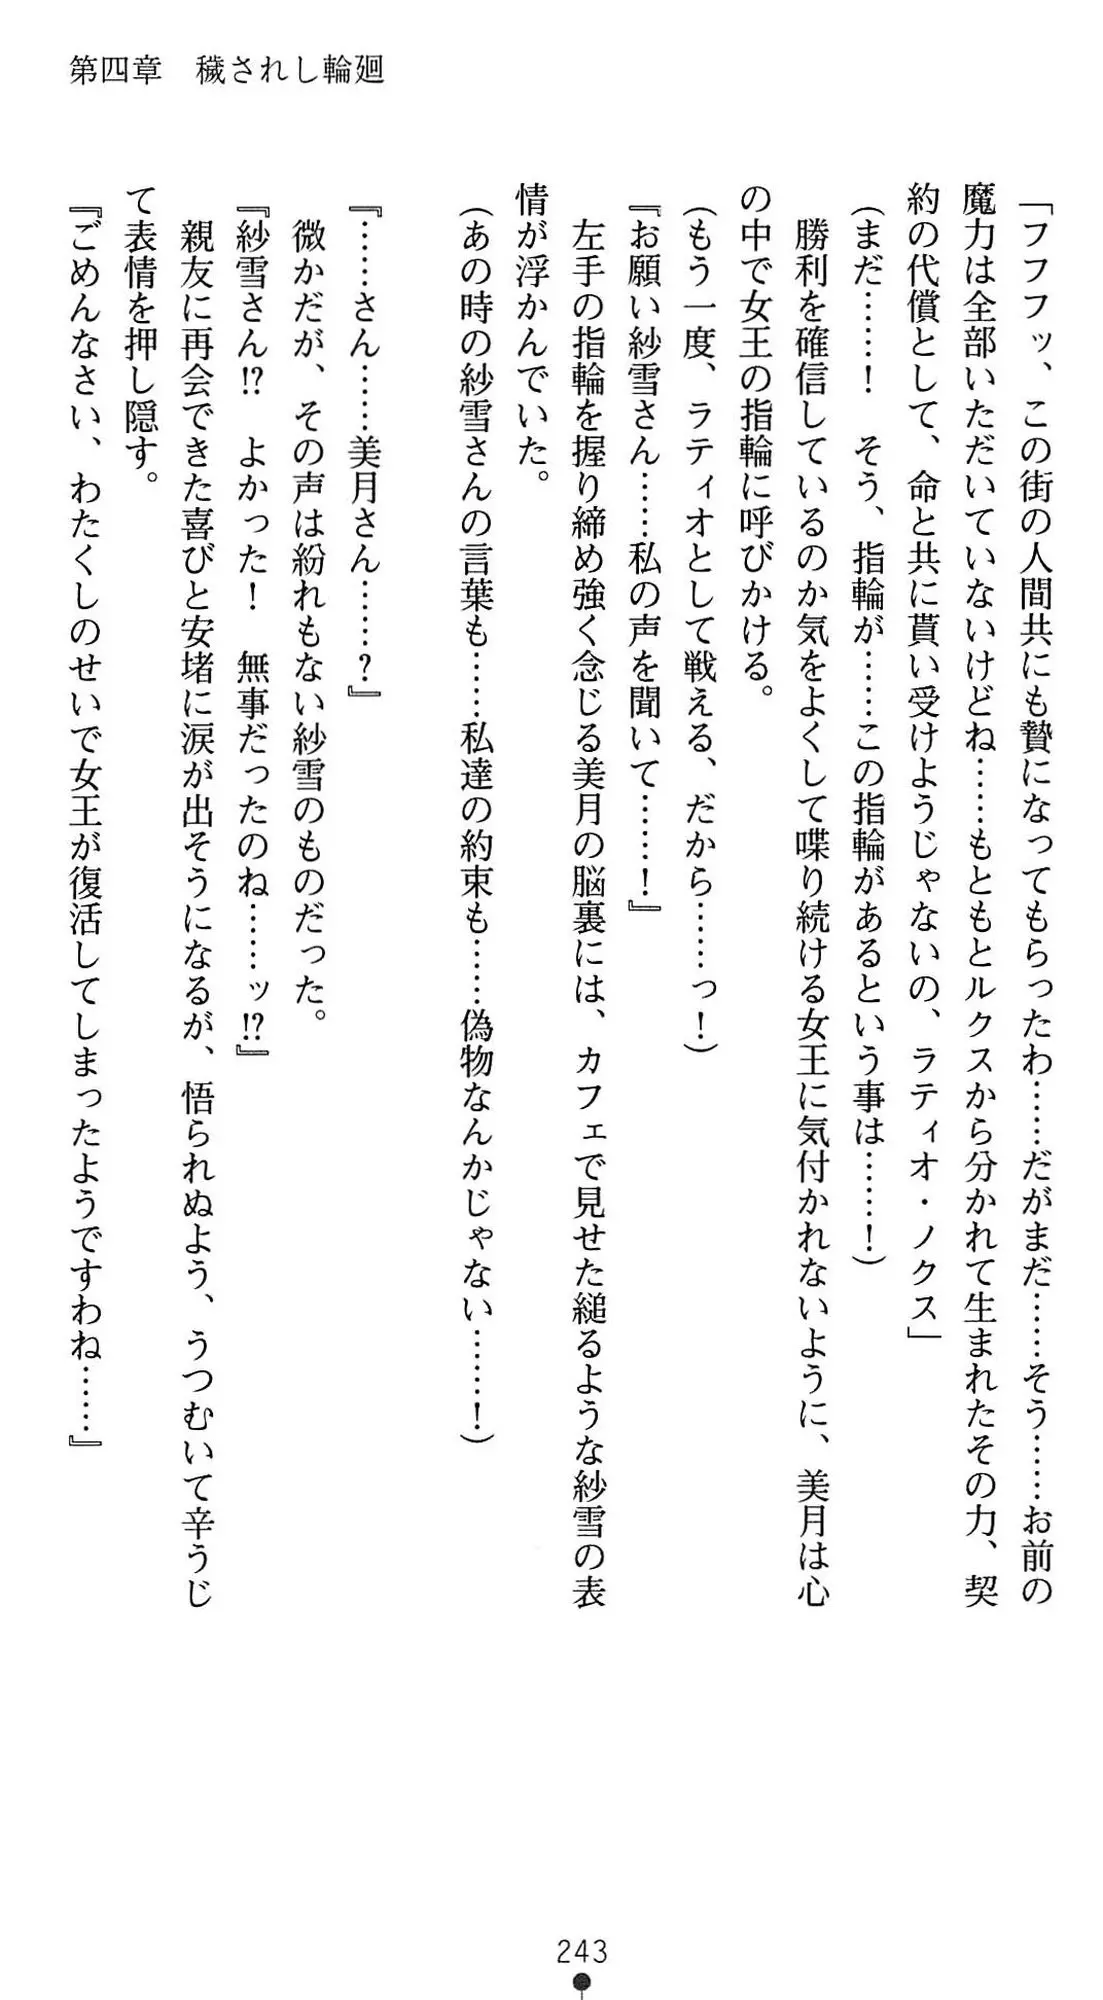 第四章　穢されし輪廻
「フフフッ、この街の人間共にも贄になってもらったわ……だがまだ……そう……お前の
魔力は全部いただいていないけどね……もともとルクスから分かれて生まれたその力、契
約の代償として、命と共に貰い受けようじゃないの、ラティオ・ノクス」
(まだ……！　そう、指輪が……この指輪があるという事は……！)
　勝利を確信しているのか気をよくして喋り続ける女王に気付かれないように、美月は心
の中で女王の指輪に呼びかける。
(もう一度、ラティオとして戦える、だから……っ！)
『お願い紗雪さん……私の声を聞いて……！』
　左手の指輪を握り締め強く念じる美月の脳裏には、カフェで見せた縋るような紗雪の表
情が浮かんでいた。
(あの時の紗雪さんの言葉も……私達の約束も……偽物なんかじゃない……！)
『……さん……美月さん……？』
　微かだが、その声は紛れもない紗雪のものだった。
『紗雪さん!?　よかった！　無事だったのね……ッ!?』
　親友に再会できた喜びと安堵に涙が出そうになるが、悟られぬよう、うつむいて辛うじ
て表情を押し隠す。
『ごめんなさい、わたくしのせいで女王が復活してしまったようですわね……』
243